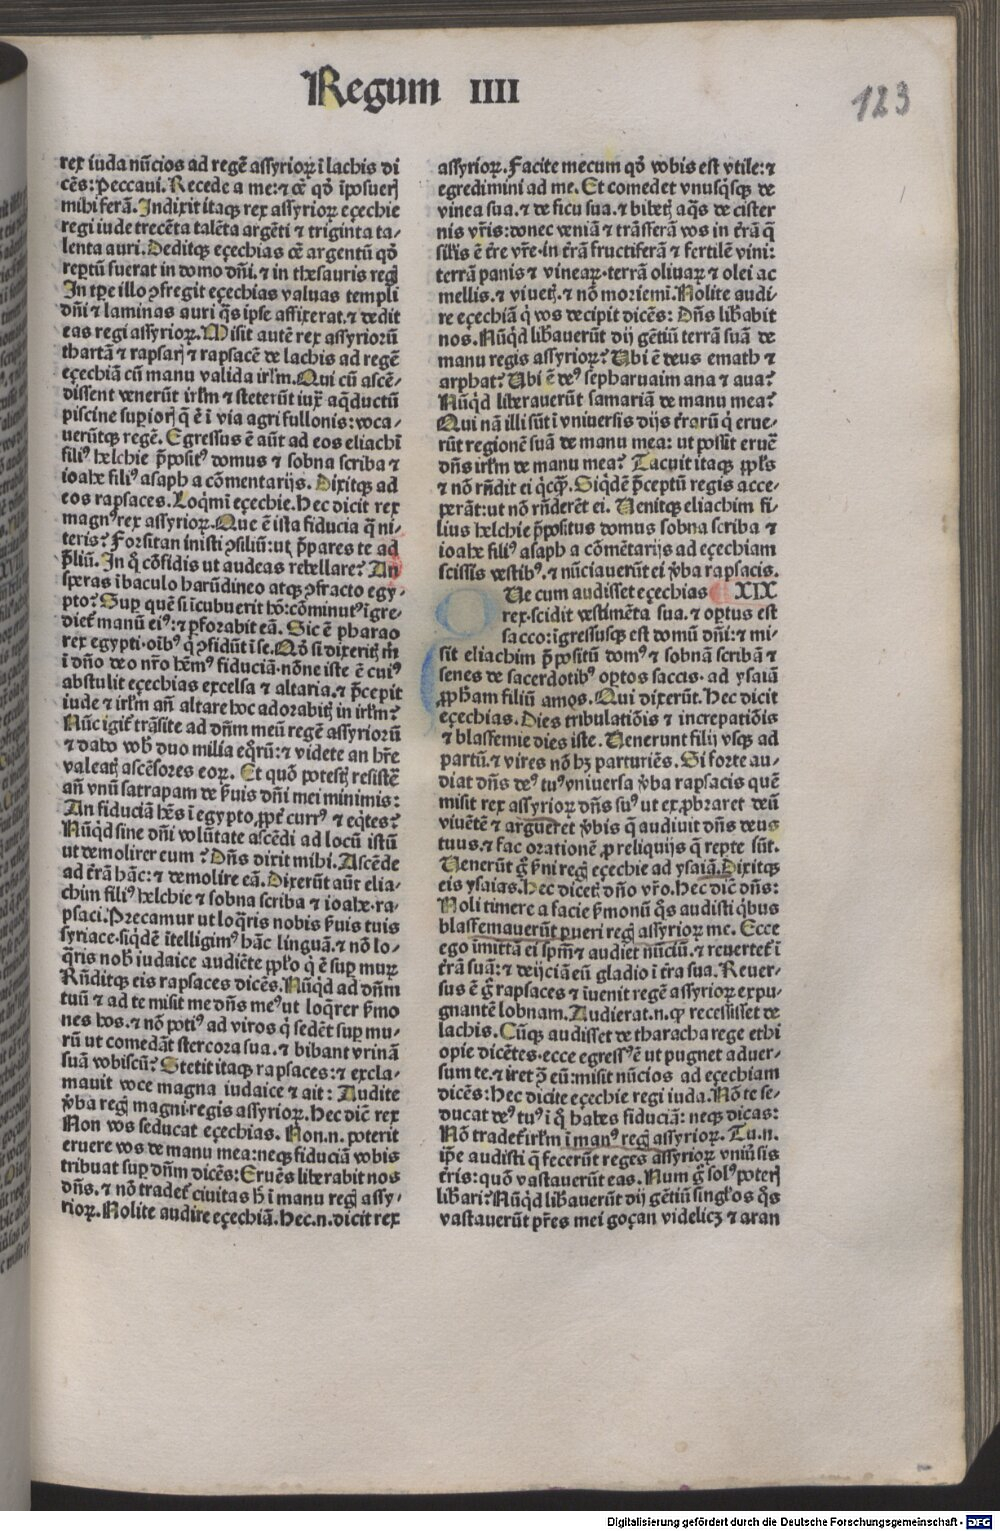 Regum IIII
123
rex iuda nūcios ad regē assyrioꝝ ī lachis di
cēs: Peccaui. Recede a me: ⁊ oē qḋ īposuerꝭ
mihi ferā. Indixit itaqꝫ rex assyrioꝝ eçechie
regi iude trecēta talēta argēti ⁊ triginta ta-
lenta auri. Deditqꝫ eçechias oē argentū qḋ
reꝑtū fuerat in domo dñi. ⁊ in thesauris regꝭ
In tꝑe illo ꝯfregit eçechias valuas templi
dñi ⁊ laminas auri q̄s ipse affixerat. ⁊ dedit
eas regi assyrioꝝ. Misit autē rex assyriorū
thartā ⁊ rapsarꝭ ⁊ rapsacē de lachis ad regē
eçechiā cū manu valida irlm̄. Qui cū ascē-
dissent venerūt irlm̄ ⁊ steterūt iux̄ aq̄ductū
piscine suꝑiorꝭ q̄ ē ī via agri fullonis: voca-
uerūtqꝫ regē. Egressus ē aūt ad eos eliachī
filiꝰ helchie p̄positꝰ domus ⁊ sobna scriba ⁊
ioahe filiꝰ asaph a cōmentarijs. Dixitqꝫ ad
eos rapsaces. Loq̇mī eçechie. Hec dicit rex
magnꝰ rex assyrioꝝ. Que ē ista fiducia q̄ ni-
teris? Forsitan inisti ꝯsiliū: ut p̄pares te ad
p̄liū. In q̊ cōfidis ut audeas rebellare? An
speras ī baculo harūdineo atqꝫ ꝯfracto egy-
pto? Suꝑ quē si īcubuerit hō: cōminutꝰ īgre-
diet᷑ manū eiꝰ: ⁊ ꝑforabit eā. Sic ē pharao
rex egypti. oībꝰ q̇ ꝯfidūt ī se. Qḋ si dixeritꝭ m̄
ī dño deo nr̄o hēmꝰ fiduciā. nōne iste ē cuiꝰ
abstulit eçechias excelsa ⁊ altaria. ⁊ p̄cepit
iude ⁊ irlm̄ añ altare hoc adorabitꝭ in irlm̄?
Nūc igit᷑ trāsite ad dñm meū regē assyriorū
⁊ dabo vob̄ duo milia eq̄rū: ⁊ videte an hr̄e
valeatꝭ ascēsores eoꝝ. Et quō potestꝭ resistē
añ vnū satrapam de ẜuis dñi mei minimis:
An fiduciā hēs ī egypto ꝓpt᷑ currꝰ ⁊ eq̇tes?
Nūq̇d sine dñi volūtate ascēdi ad locū istū
ut demolirer eum? Dñs dixit mihi. Ascēde
ad t̄rā hāc: ⁊ demolire eā. Dixerūt aūt elia-
chim filiꝰ helchie ⁊ sobna scriba ⁊ ioahe. ra-
psaci. Precamur ut loq̄ris nobis ẜuis tuis
syriace. siq̇dē ītelligimꝰ hāc linguā. ⁊ nō lo-
q̄ris nob̄ iudaice audiēte ppl̄o q̇ ē suꝑ muꝝ
Rñditqꝫ eis rapsaces dicēs. Nūq̇d ad dñm
tuū ⁊ ad te misit me dñs meꝰ ut loq̄rer ẜmo
nes hos. ⁊ nō potiꝰ ad viros q̇ sedēt suꝑ mu-
rū ut comedāt stercora sua. ⁊ bibant vrinā
suā vobiscū? Stetit itaqꝫ rapsaces: ⁊ excla-
mauit voce magna iudaice ⁊ ait: Audite
v̄ba regꝭ magni. regis assyrioꝝ. Hec dic̄ rex
Non vos seducat eçechias. Non.n. poterit
eruere vos de manu mea: neqꝫ fiduciā vobis
tribuat suꝑ dñm dicēs: Eruēs liberabit nos
dñs. ⁊ nō tradet᷑ ciuitas h̄ ī manu regꝭ assy-
rioꝝ. Nolite audire eçechiā. Hec.n. dicit rex
assyrioꝝ. Facite mecum qḋ vobis est vtile: ⁊
egredimini ad me. Et comedet vnusq̇sqꝫ de
vinea sua. ⁊ de ficu sua. ⁊ bibetꝭ aq̄s de cister
nis vr̄is: donec veniā ⁊ trāsferā vos in t̄rā q̄
sil̄is ē t̄re vr̄e. in t̄rā fructiferā ⁊ fertilē vini:
terrā panis ⁊ vineaꝝ. terrā oliuaꝝ ⁊ olei ac
mellis. ⁊ viuetꝭ. ⁊ nō moriemī. Nolite audi-
re eçechiā q̇ vos decipit dicēs: Dñs lib̄abit
nos. Nūq̇d lib̄auerūt dij gētiū terrā suā de
manu regis assyrioꝝ? Vbi ē deus emath ⁊
arphat? Vbi ē deꝰ sepharuaim ana ⁊ aua?
Nūq̇d liberauerūt samariā de manu mea?
Qui nā illi sūt ī vniuersis dijs t̄rarū q̇ erue-
rūt regionē suā de manu mea: ut possit eruē
dñs irlm̄ de manu mea? Tacuit itaqꝫ ppl̄s
⁊ nō rñdit ei q̇cq̄. Siq̇dē p̄ceptū regis acce-
perāt: ut nō rñderēt ei. Venitqꝫ eliachim fi-
lius helchie p̄positus domus sobna scriba ⁊
ioahe filiꝰ asaph a cōmētarijs ad eçechiam
scissis vestibꝰ. ⁊ nūciauerūt ei v̄ba rapsacis.
Ve cum audisset eçechias XIX
rex. scidit vestimēta sua. ⁊ oꝑtus est
sacco: īgressusqꝫ est domū dñi: ⁊ mi-
sit eliachim p̄positū domꝰ ⁊ sobnā scribā ⁊
senes de sacerdotibꝰ oꝑtos saccis. ad ysaiā
ꝓph̄am filiū amos. Qui dixerūt. Hec dicit
eçechias. Dies tribulatiōis ⁊ increpatiōis
⁊ blasfemie dies iste. Venerunt filij vsqꝫ ad
partū. ⁊ vires nō hꝫ parturiēs. Si forte au-
diat dñs deꝰ tuꝰ vniuersa v̄ba rapsacis quē
misit rex assyrioꝝ dñs suꝰ ut exꝓbraret deū
viuētē ⁊ argueret v̄bis q̄ audiuit dñs deus
tuus. ⁊ fac orationē ꝓ reliquijs q̄ reꝑte sūt.
Venerūt g̊ ẜui regꝭ eçechie ad ysaiā. Dixitqꝫ
eis ysaias. Hec dicetꝭ dño vr̄o. Hec dic̄ dñs:
Noli timere a facie ẜmonū q̊s audisti q̇bus
blasfemauerūt pueri regꝭ assyrioꝝ me. Ecce
ego īmittā ei spm̄ ⁊ audiet nūciū. ⁊ reuertet᷑ ī
t̄rā suā: ⁊ deijciā eū gladio ī t̄ra sua. Reuer-
sus ē g̊ rapsaces ⁊ īuenit regē assyrioꝝ expu-
gnantē lobnam. Audierat.n. ꝙ recessisset de
lachis. Cūqꝫ audisset de tharacha rege ethi
opie dicētes. ecce egressꝰ ē ut pugnet aduer-
sum te. ⁊ iret ꝯ̄ eū: misit nūcios ad eçechiam
dicēs: Hec dicite eçechie regi iuda. Nō te se-
ducat deꝰ tuꝰ ī q̊ habes fiduciā: neqꝫ dicas:
Nō tradet᷑ irlm̄ ī manꝰ regꝭ assyrioꝝ. Tu.n.
ip̄e audisti q̄ fecerūt reges assyrioꝝ vniūsis
t̄ris: quō vastauerūt eas. Num g̊ solꝰ poterꝭ
lib̄ari? Nūq̇d lib̄auerūt dij gētiū singl̄os q̊s
vastauerūt pr̄es mei goçan videlicꝫ ⁊ aran
Digitalisierung gefördert durch die Deutsche Forschungsgemeinschaft - DFG